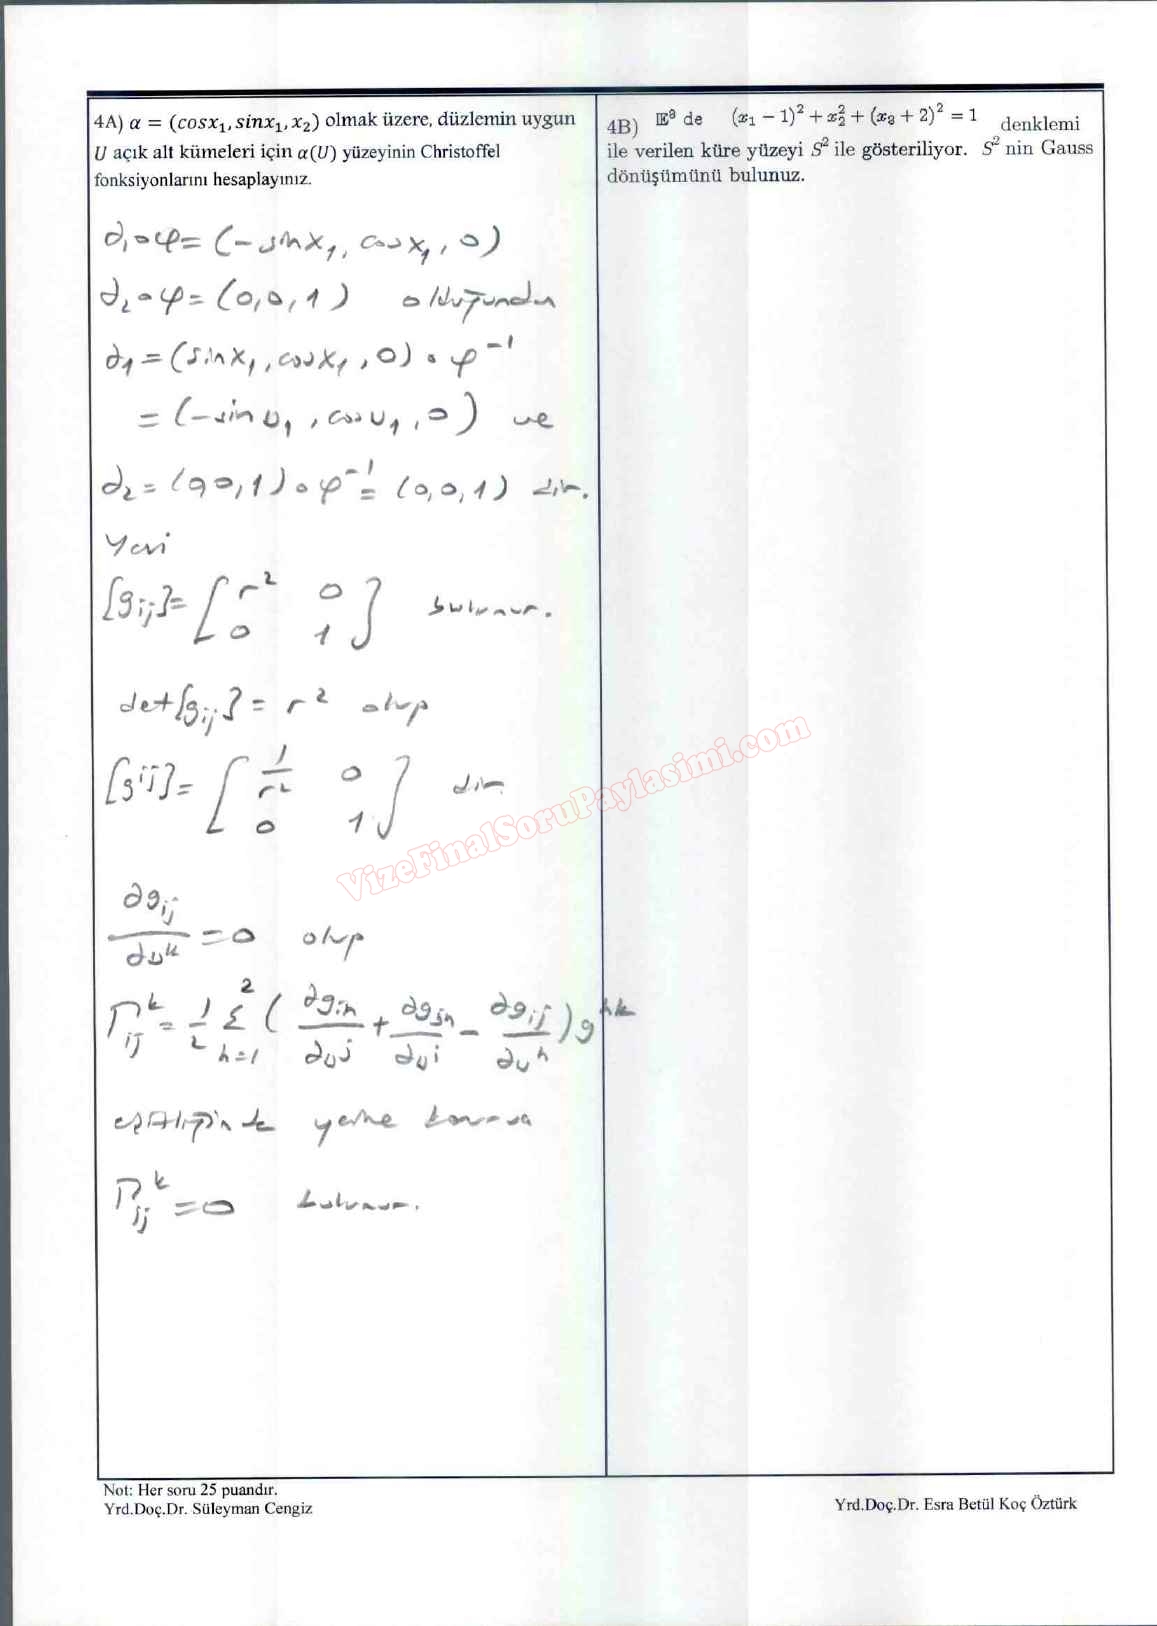 4A) α = (cosx₁, sinx₁, x₂) olmak üzere, düzlemin uygun
U açık alt kümeleri için α(U) yüzeyinin Christoffel
fonksiyonlarını hesaplayınız.
∂₁∘φ = (-sinx₁, cosx₁, 0)
∂₂∘φ = (0,0,1) olduğundan
∂₁ = (sinx₁, cosx₁, 0) ∘ φ⁻¹
= (-sin u₁, cos u₁, 0) ve
∂₂ = (0,0,1) ∘ φ⁻¹ = (0,0,1) dir.
Yani
[g_ij] = [ r² 0 ; 0 1 ] bulunur.
det[g_ij] = r² olup
[g^ij] = [ 1/r² 0 ; 0 1 ] dir.
∂g_ij / ∂u^k = 0 olup
Γ_ij^k = 1/2 Σ_{h=1}^{2} ( ∂g_ih/∂u^j + ∂g_jh/∂u^i - ∂g_ij/∂u^h ) g^hk
eşitliğinde yerine konursa
Γ_ij^k = 0 bulunur.
4B) 𝔼³ de (x₁ − 1)² + x₂² + (x₃ + 2)² = 1 denklemi
ile verilen küre yüzeyi S² ile gösteriliyor. S² nin Gauss
dönüşümünü bulunuz.
VizeFinalSoruPaylasimi.com
Not: Her soru 25 puandır.
Yrd.Doç.Dr. Süleyman Cengiz
Yrd.Doç.Dr. Esra Betül Koç Öztürk